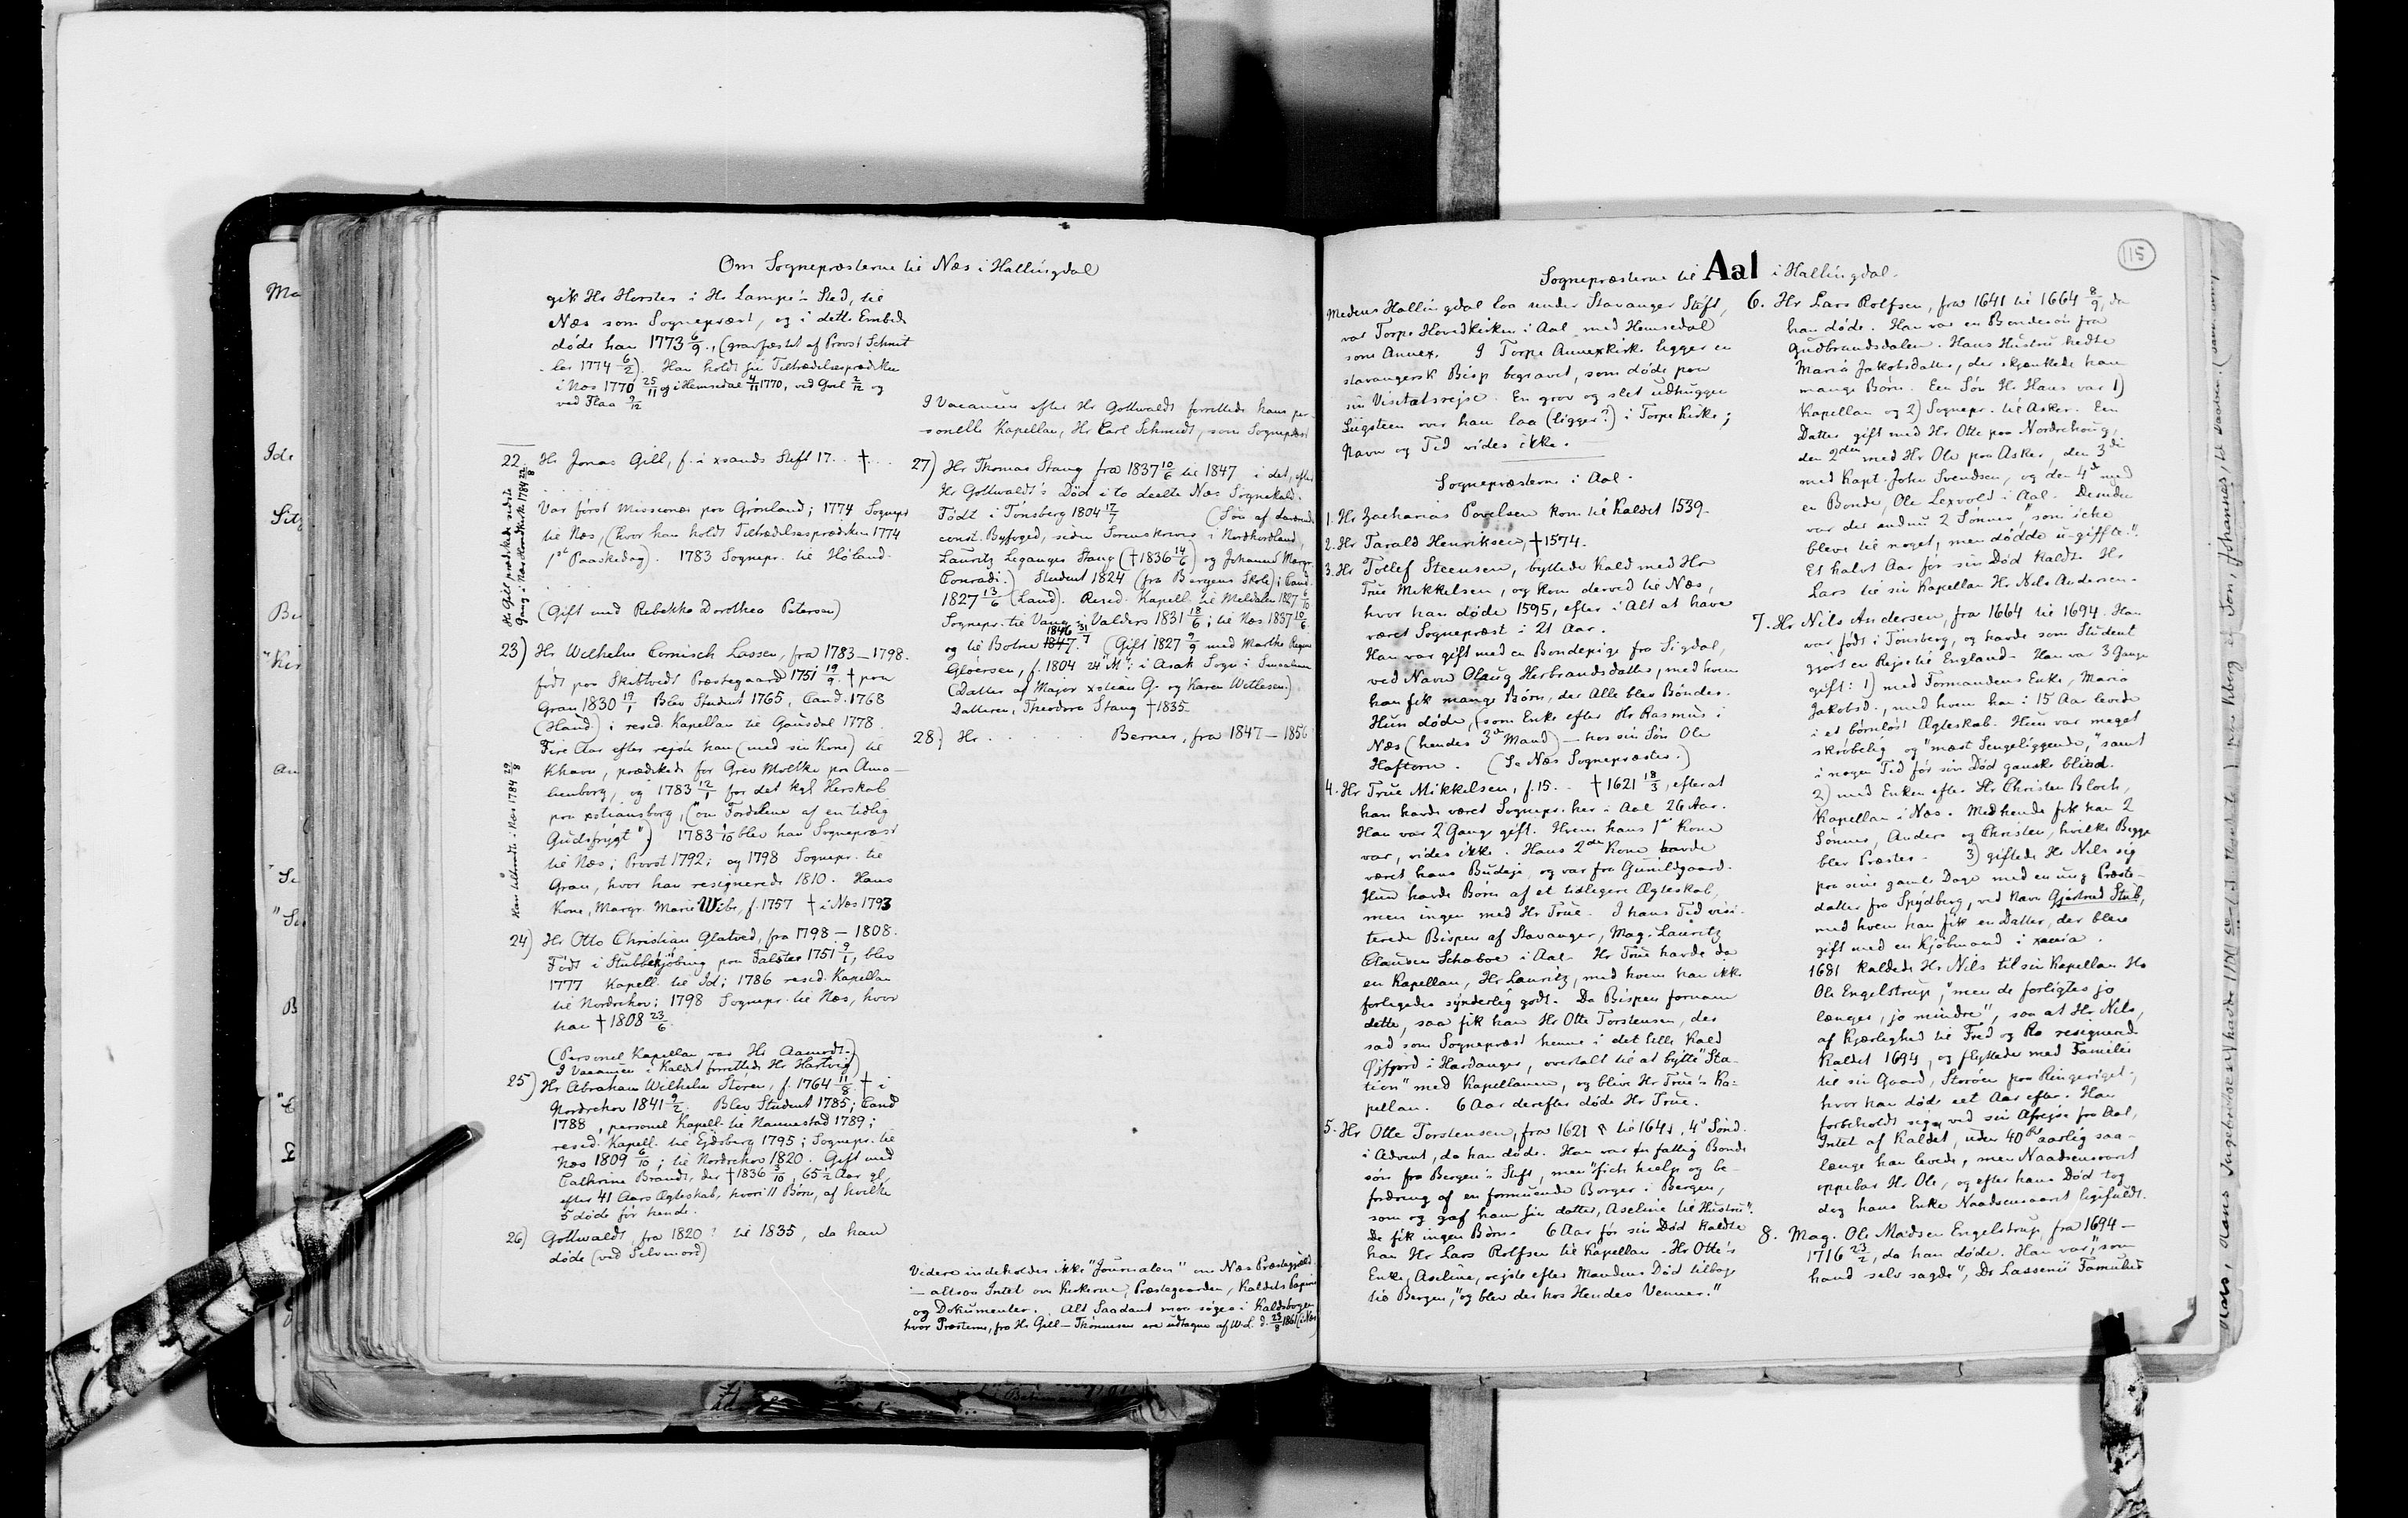 Om Sognepræsterne til Næs i Hallingdal
gik Hr Horster i Hr Lampe's Sted, til
Næs som Sognepræst, og i dette Embede
døde han 1773 6/9, (gravfæstet af Provst Schmit
ler 1774 6/2). Han holdt sin Tiltrædelsesprædiken
i Næs 1770 25/11 og i Hemsedal 4/11 1770, ved Goel 2/12 og
ved Flaa 9/12
22. Hr Jonas Gill, f. i xsands Stift 17.. † ...
Var først Missionær paa Grønland; 1774 Sognepr
til Næs, (hvor han holdt Tiltrædelsesprædiken 1774
1st Paaskedag). 1783 Sognepr. til Høland.
(Gift med Rebekka Dorothea Petersen)
Hr Gill prædikede sidste
Gang i Næs Hovedkirke 1784 22/8
23) Hr Wilhelm Cornisch Lassen, fra 1783–1798.
født paa Skibtvedt Præstegaard 1751 19/9. † paa
Gran 1830 19/1. Blev Student 1765, Cand. 1768
(Haud) i resid. Kapellan til Gausdal 1778.
Fire Aar efter rejste han (med sin Kone) til
Khavn, prædikede for Grev Moltke paa Ama-
lienborg, og 1783 12/1 for det kgl Herskab
paa xstiansborg, ("om Fordelene af en tidlig
Gudsfrygt") 1783 1/10 blev han Sognepræst
til Næs; Provst 1792; og 1798 Sognepr. til
Gran, hvor han resignerede 1810. Hans
Kone, Margr. Marie Wibe, f. 1757 † i Næs 1793
Han tiltraadte i Næs 1784 29/8
24) Hr Otto Christian Glatved, fra 1798–1808.
Født i Stubbekjøbing paa Falster 1751 9/1, blev
1777 Kapell. til Id; 1786 resid. Kapellan
til Norderhov; 1798 Sognepr. til Næs, hvor
han † 1808 23/6.
(Personel Kapellan var Hr Aamodt.)
I Vacancen i Kaldet forrettede Hr Hartvig)
25) Hr Abraham Wilhelm Støren, f. 1764 11/8. † i
Norderhov 1841 9/2. Blev Student 1785; Cand
1788, personel Kapell. til Nannestad 1789;
resid. Kapell. til Ejdsberg 1795; Sognepr. til
Næs 1809 6/10; til Norderhov 1820. Gift med
Cathrine Brandt, der † 1836 3/10, 65 1/2 Aar gl,
efter 41 Aars Ægteskab, hvori 11 Børn, af hvilke
5 døde før hende.
26) Gottwaldt, fra 1820 til 1835, da han
døde (ved Selvmord)
I Vacancen efter Hr Gottwaldt forrettede hans per
sonelle Kapellan, Hr Carl Schmidt, som Sognepræst
27) Hr Thomas Stang fra 1837 10/6 til 1847 i det, efter
Hr Gottwaldt's Død i to deelte Næs Sognekald.
Født i Tønsberg 1804 17/7 (Søn af
const. Byfoged, siden Sorenskriver i Nordhordland,
Lauritz Leganger Stang († 1836 14/6) og Johanne Margr.
Conradi.) Student 1824 (fra Bergens Skole); Cand.
1827 13/6 (Laud). Resid. Kapell. til Meldalen 1827 6/10
Sognepr. til Vang i Valders 1831 18/6; til Næs 1837 10/6
og til Botne 1847. 1846 31/7 (Gift 1827 9/9 med Marthe
Gløersen, f. 1804 24 M: i Asak Sogn i Smaalenene
(Datter af Major xstian G. og Karen Wetlesen).
Datteren, Theodora Stang † 1835.
28) Hr . . . . . Berner, fra 1847–1856
Videre indeholder ikke "Journalen" om Næs Præstegjeld
– altsaa Intet om Kirkerne, Præstegaarden, Kaldets Papirer
og Dokumenter. Alt Saadant maa søges i Kaldsbogen
hvor Præsterne, fra Hr Gill – Thønnesen ere udtagne af W.L. d. 23/8 1861 (i Næs)
115
Sognepræsterne til Aal i Hallingdal.
Medens Hallingdal laa under Stavanger Stift,
var Torpe Hovedkirken i Aal med Hemsedal
som Annex. I Torpe Annexkirke ligger en
stavangersk Bisp begravet, som døde paa
sin Visitatsrejse. En grov og slet udhuggen
Liigsteen over ham laa (ligger?) i Torpe Kirke;
Navn og Tid vides ikke.
Sognepræsterne i Aal.
1. Hr Zacharias Povelsen kom til Kaldet 1539.
2. Hr Tarald Henriksen, † 1574.
3. Hr Tollef Steensen, byttede Kald med Hr
True Mikkelsen, og kom derved til Næs,
hvor han døde 1595, efter i Alt at have
været Sognepræst i 21 Aar.
Han var gift med en Bondepige fra Sigdal,
ved Navn Olaug Herbrandsdatter, med hvem
han fik mange Børn, der Alle blev Bønder.
Hun døde, (som Enke efter Hr Rasmus i
Næs (hendes 3die Mand) – hos sin Søn Ole
Haftorn. (Se Næs Sognepræster.)
4. Hr True Mikkelsen, f. 15.. † 1621 18/3, efterat
han havde været Sognepr. her i Aal 26 Aar.
Han var 2 Gange gift. Hvem hans 1ste Kone
var, vides ikke. Hans 2den Kone havde
været hans Budeje, og var fra Gunildgaard.
Hun havde Børn af et tidligere Ægteskab,
men ingen med Hr True. I hans Tid visi-
terede Bispen af Stavanger, Mag. Lauritz
Clausen Schaboe i Aal. Hr True havde da
en Kapellan, Hr Lauritz, med hvem han ikke
forligedes synderlig godt. Da Bispen fornam
dette, saa fik han Hr Otte Torstensen, der
sad som Sognepræst henne i det lille Kald
Øjfjord i Hardanger, overtalt til at bytte "Sta-
tion" med Kapellanen, og blive Hr True's Ka-
pellan. 6 Aar derefter døde Hr True.
5. Hr Otte Torstensen, fra 1621 til 1641, 4de Sønd.
i Advent, da han døde. Han var en fattig Bonde
søn fra Bergen's Stift, men "fich hielp og be-
fordring af en formuende Borger i Bergen,
som og gaf ham sin datter, Aseline til Hustru".
De fik ingen Børn. 6 Aar før sin Død kaldte
han Hr Lars Rolfsen til Kapellan. Hr Otte's
Enke, Aseline, rejste efter Mandens Død tilbage
til Bergen, "og blev der hos Hendes Venner."
6. Hr Lars Rolfsen, fra 1641 til 1664 8/9, da
han døde. Han var en Bondesøn fra
Gudbrandsdalen. Hans Hustru hedte
Maria Jakobsdatter, der skjænkede ham
mange Børn. Een Søn Hr Hans var 1)
Kapellan og 2) Sognepr. til Asker. Een
Datter gift med Hr Otte paa Nordrehoug,
den 2den med Hr Ole paa Asker, den 3die
med Kapt. John Svendsen, og den 4de med
en Bonde, Ole Lexvold i Aal. Desuden
var der endnu 2 Sønner, "som icke
bleve til noget, men dødde u-giffte".
Et halvt Aar før sin Død kaldte Hr
Lars til sin Kapellan Hr Nils Andersen.
7. Hr Nils Andersen, fra 1664 til 1694. Han
var født i Tønsberg, og havde som Student
gjort en Rejse til England. Han var 3 Gange
gift: 1) med Formandens Enke, Maria
Jakobsd., med hvem han i 15 Aar levede
i et børnløst Ægteskab. Hun var meget
skrøbelig og "mæst Sengeliggende," samt
i nogen Tid før sin Død ganske blind.
2) med Enken efter Hr Christen Bloch,
Kapellan i Næs. Med hende fik han 2
Sønner, Anders og Christen, hvilke Begge
blev Præster. 3) giftede Hr Nils sig
paa sine gamle Dage med en ung Præste-
datter fra Spydberg, ved Navn Gjertrud Stub,
med hvem han fik en Datter, der blev
gift med en Kjøbmand i xania.
1681 kaldede Hr Nils til sin Kapellan Hr
Ole Engelstrup, "men de forligtes jo
længer, jo mindre", saa at Hr Nils,
af Kjærlighed til Fred og Ro resignerede
Kaldet 1694, og flyttede med Familie
til sin Gaard, Storøen paa Ringeriget,
hvor han døde eet Aar efter. Han
forbeholdt sig, ved sin Afrejse fra Aal,
Intet af Kaldet, uden 40 Rd aarlig saa-
længe han levede, men Naadensaaret
oppebar Hr Ole, og efter hans Død tog
dog hans Enke Naadensaaret ligefuldt.
8. Mag. Ole Madsen Engelstrup, fra 1694–
1716 23/2, da han døde. Han var, "som
hand selv sagde", Dr Lassenii Famulus